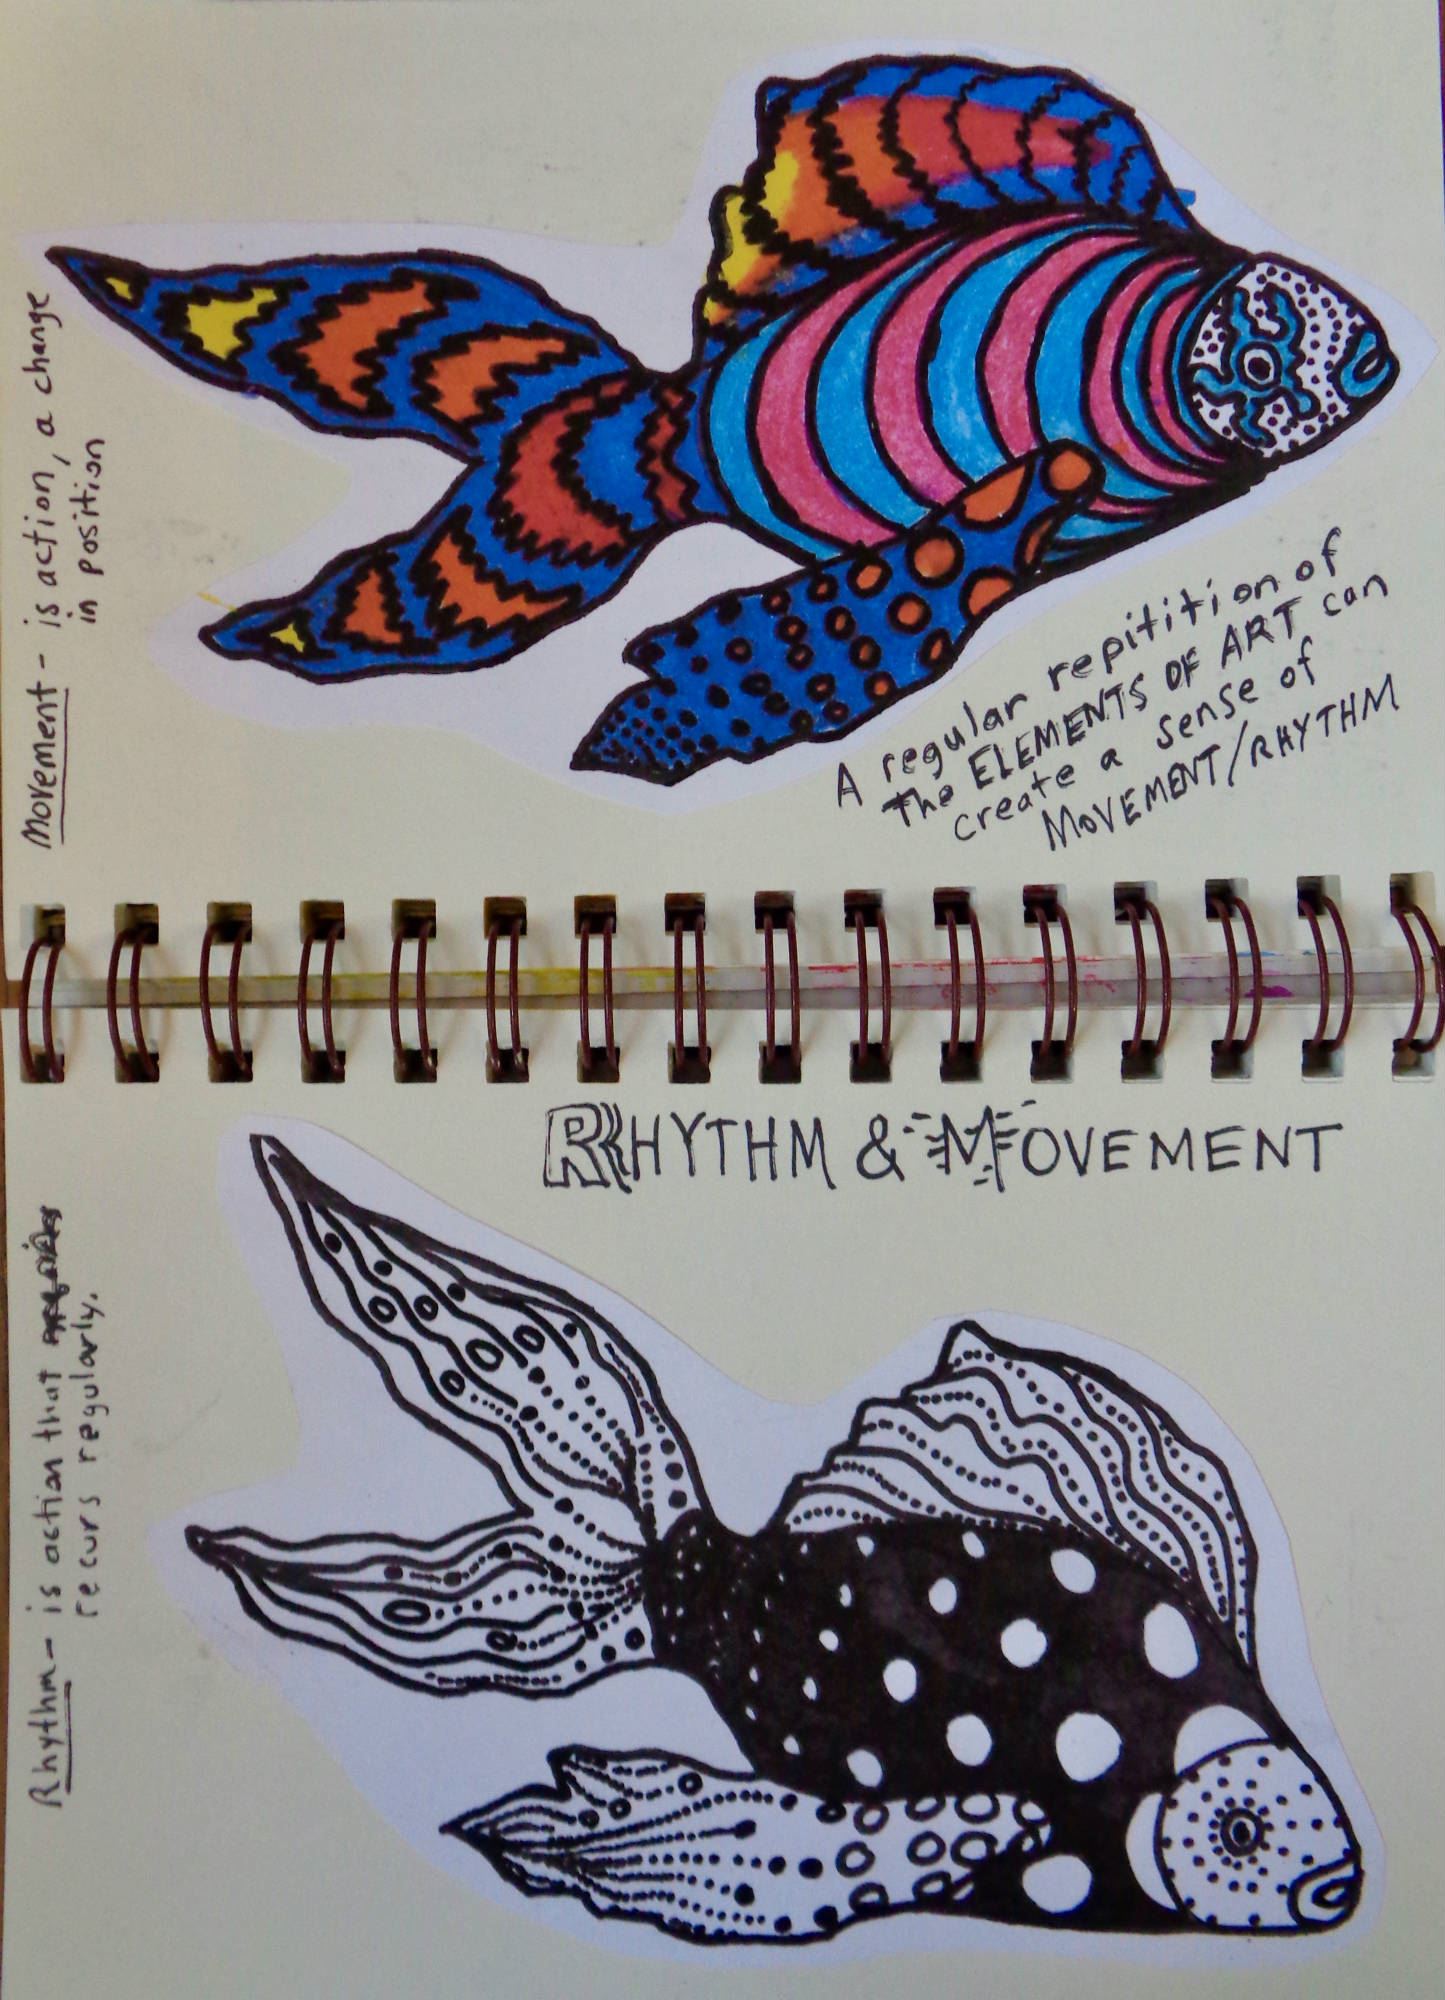 Movement - is action, a change
in position
A regular repitition of
the ELEMENTS OF ART can
create a sense of
MOVEMENT/RHYTHM
RHYTHM & MOVEMENT
Rhythm - is action that
recurs regularly.